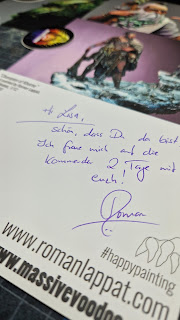 Hi Lasa,
schön, dass Du da bist
Ich freue mich auf die
kommende 2 Tage mit
euch!
Roman
#happypainting
www.romanlappat.com
www.massivevoodoo